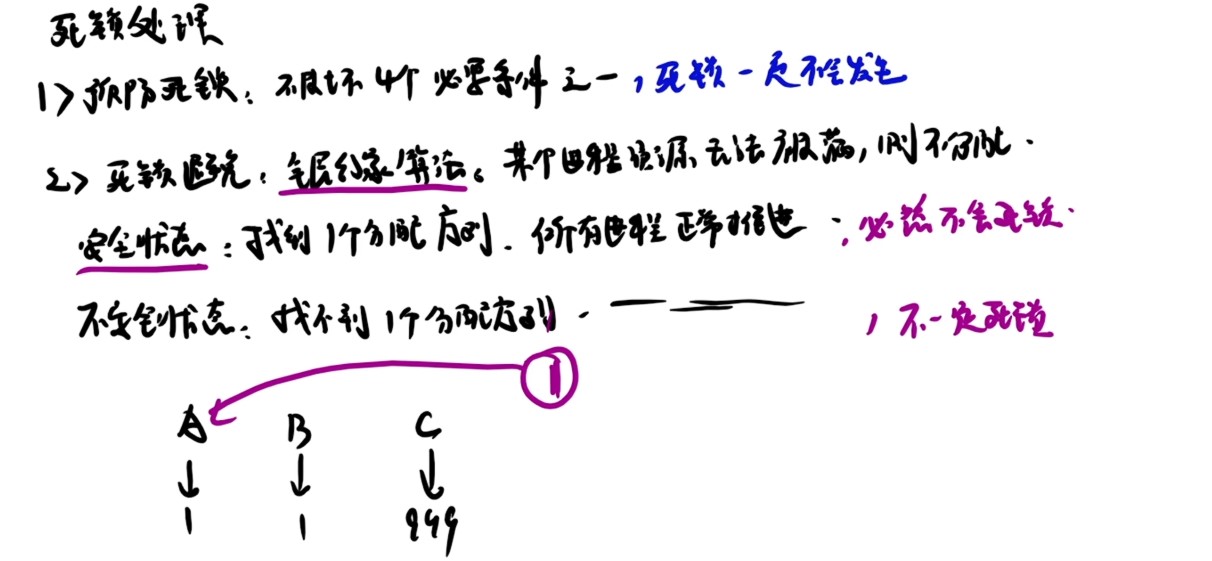 死锁处理
1> 预防死锁：不股坏 4个 必要条件 之一，死锁一定不会发生
2> 死锁避免：银行家算法。某个进程资源无法满足，则不分配.
安全状态：找到 1个分配序列. 所有进程正常推进，必然不会死锁.
不安全状态：找不到 1个分配序列. ，不一定死锁
①
A B C
↓ ↓ ↓
1 1 999